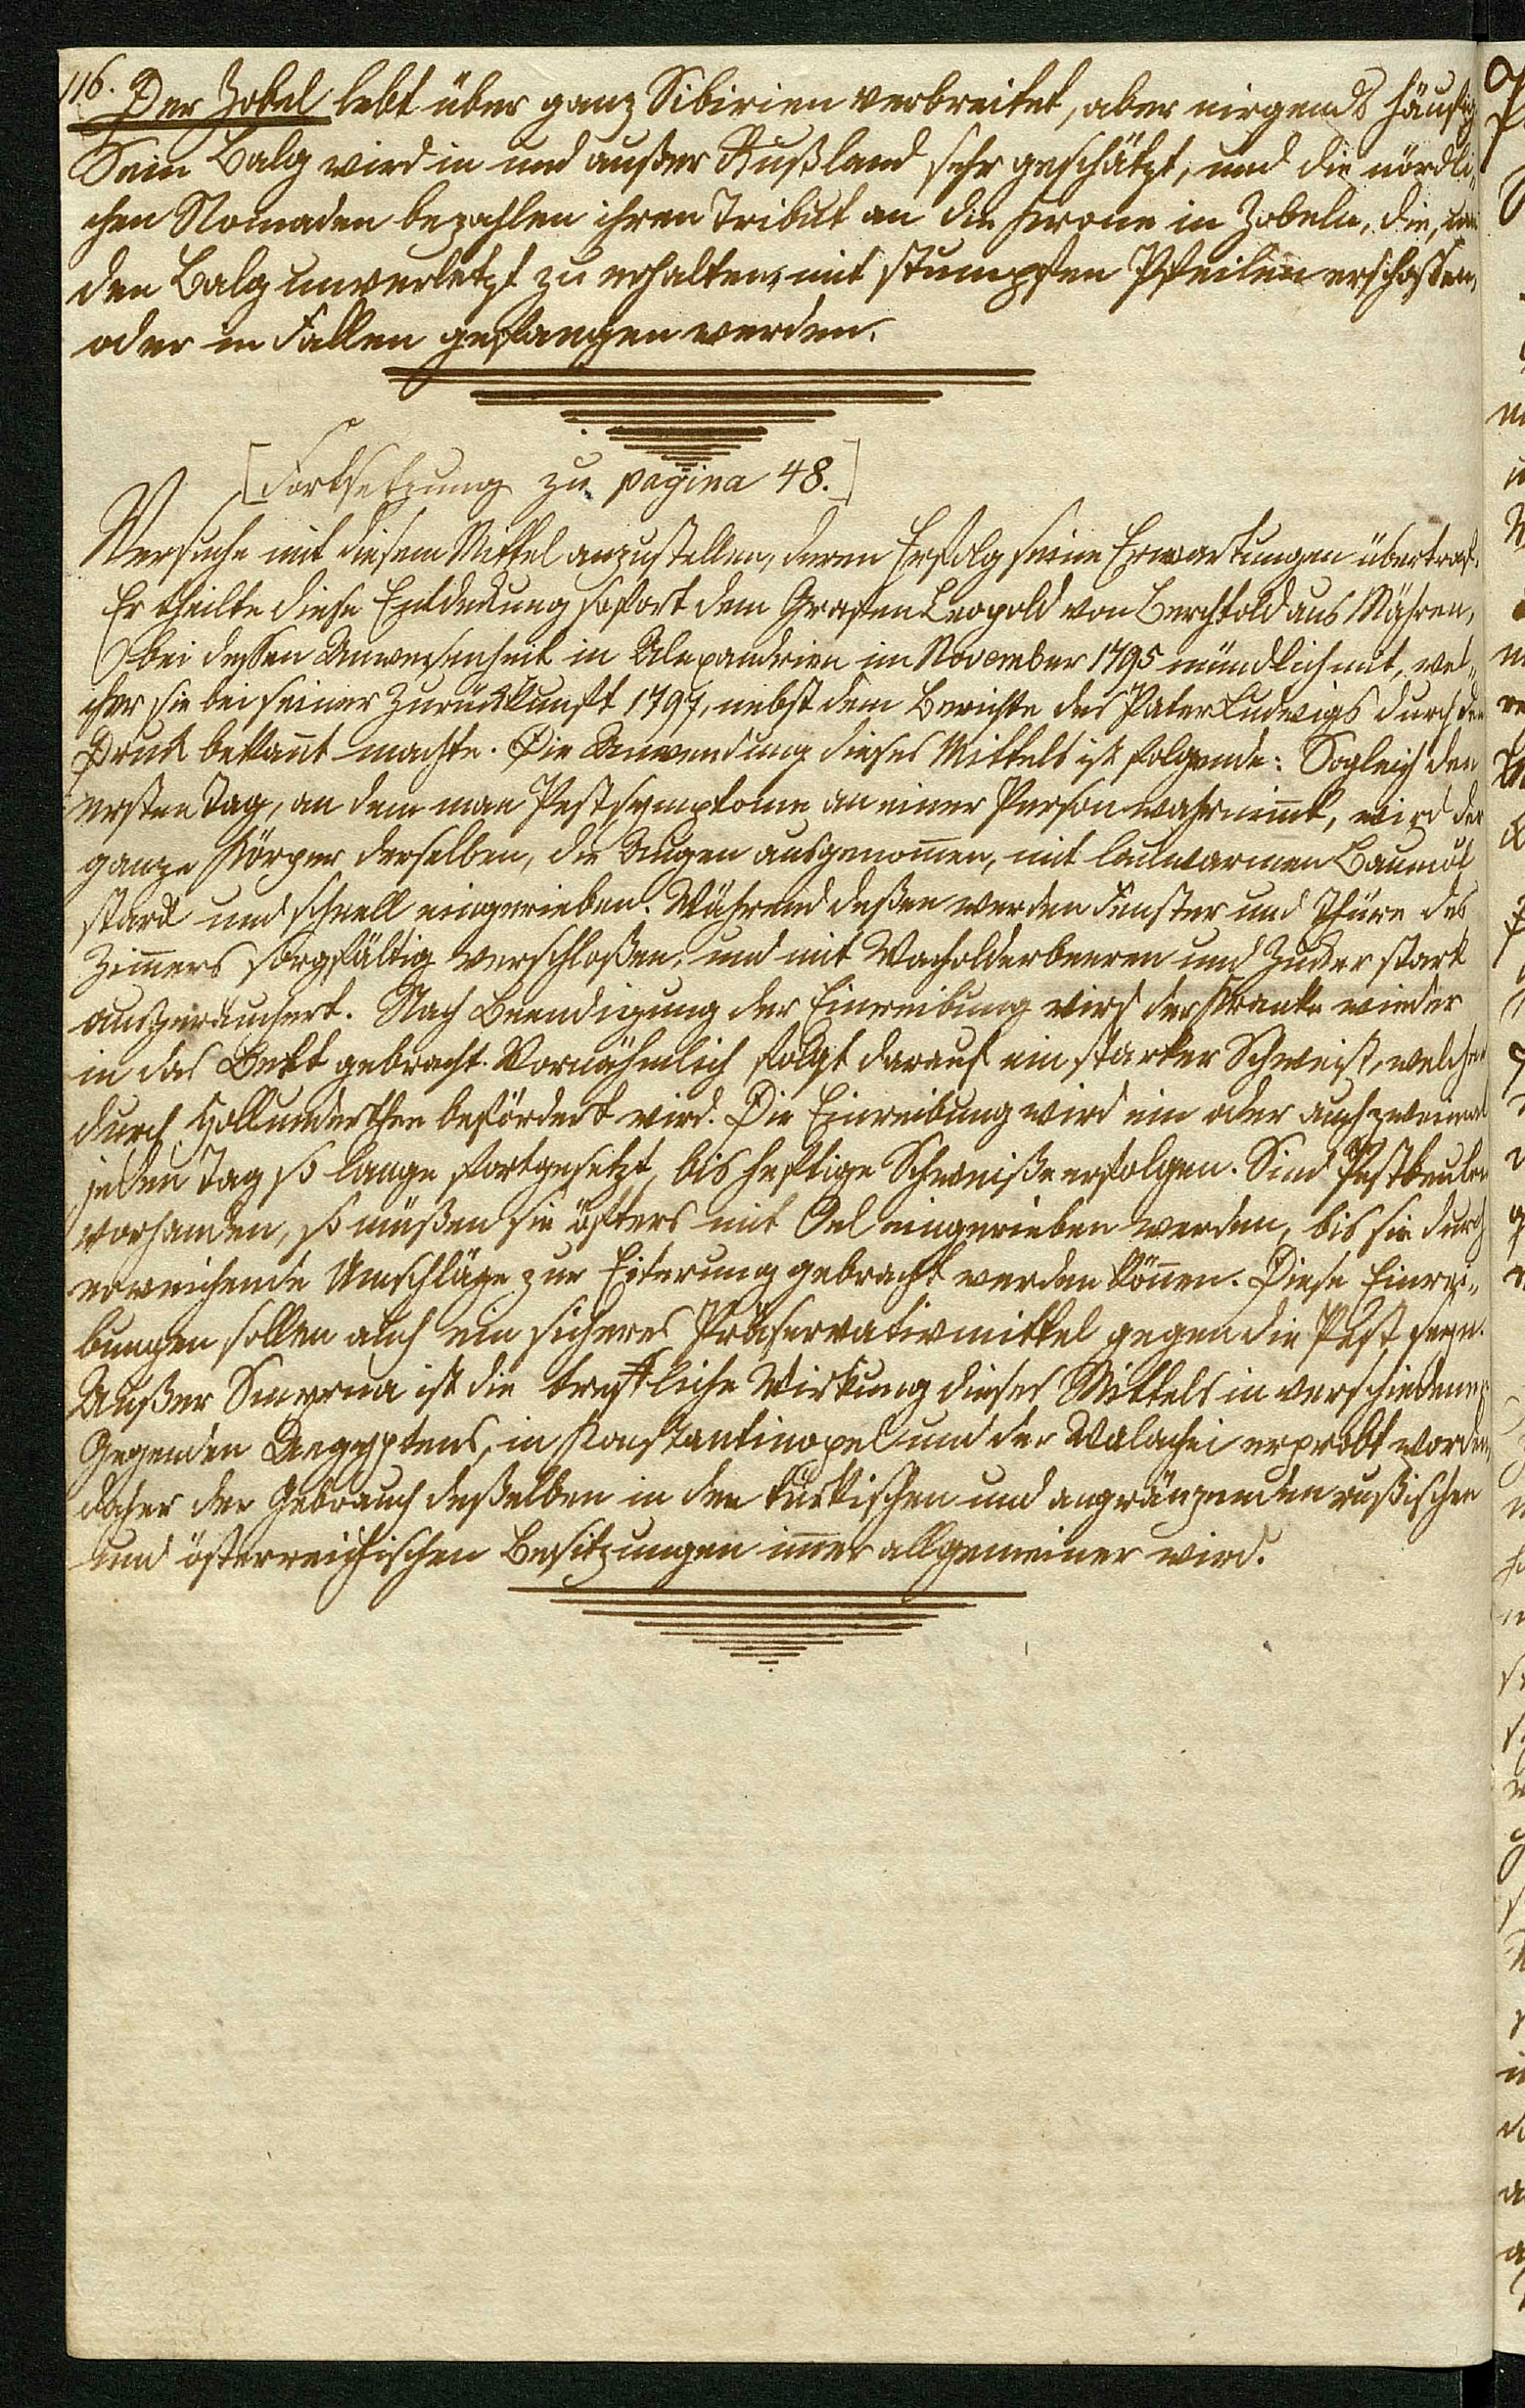 116.
Der Zobel lebt über ganz Sibirien verbreitet, aber nirgends häufig
Sein Balg wird in und außer Rußland sehr geschätzt, und die nördli„
chen Nomaden bezahlen ihren Tribut an die Krone in Zobeln, die, um
den Balg unverletzt zu erhalten, mit stumpfen Pfeilen erschossen,
oder in Fallen gefangen werden.
[Fortsetzung zu pagina 48.]
Versuche mit diesem Mittel anzustellen, deren Erfolg seine Erwartungen übertraf.
Er theilte diese Entdekung sofort dem Grafen Leopold von Berchtold aus Mähren,
bei dessen Anwesenheit in Alexandrien im November 1795 mündlich mit, wel„
cher sie bei seiner Zurückkunft 1797, nebst dem Berichte des Pater Ludwigs durch den
Druk bekan̄t machte. Die Anwendung dieses Mittels ist folgende: Sogleich den
ersten Tag, an dem man Pestsymptome an einer Person wahrnim̄t, wird der
ganze Körper derselben, die Augen ausgenom̄en, mit lauwarmen Baumöl
stark und schnell eingerieben. Während deßen werden Fenster und Thüre des
Zim̄ers sorgfältig verschloßen, und mit Wacholderbeeren und Zucker stark
ausgeräuchert. Nach Beendigung der Einreibung wird der Kranke wieder
in das Bett gebracht. Vornähmlich folgt darauf ein starker Schweiß, welcher
durch Hollunderthee befördert wird. Die Einreibung wird ein oder auch zweimal
jeden Tag so lange fortgesetzt, bis heftige Schweiße erfolgen. Sind Pestbeulen
vorhanden, so müßen sie öfters mit Oel eingerieben werden, bis sie durch
erweichende Umschläge zur Eiterung gebracht werden kön̄en. Diese Einrei„
bungen sollen auch ein sicheres Präservativmittel gegen die Pest seyn.
Außer Smyrna ist die treffliche Wirkung dieses Mittels in verschiedenen
Gegenden Aegyptens, in Konstantinopel und der Walachei erprobt worden,
daher der Gebrauch deßelben in den türkischen und angränzenden rußischen
und österreichischen Besitzungen im̄er allgemeiner wird.